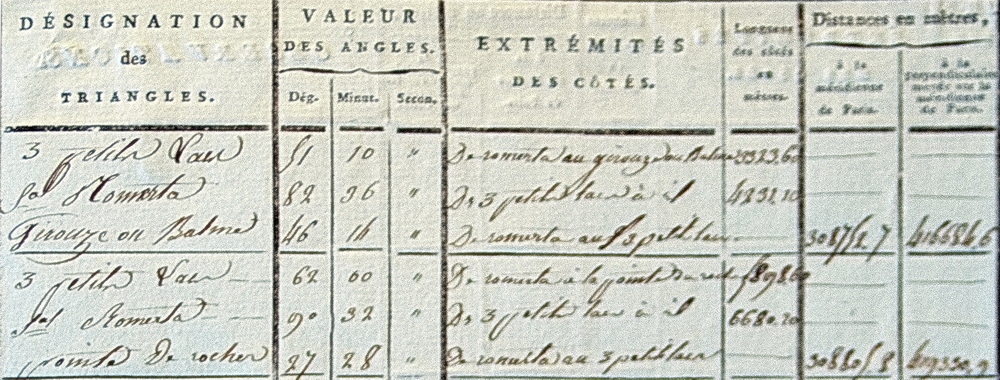 DÉSIGNATION des TRIANGLES.
VALEUR DES ANGLES.
Dég. Minut. Secon.
EXTRÉMITÉS DES CÔTÉS.
Longueur des côtés en mètres.
Distances en mètres,
à la méridienne de Paris.
à la perpendiculaire menée sur la méridienne de Paris.
3 petits Laus 51 10 " De romerta au girouze ou Balme 3323.60
82 36 " De 3 petits laus à il 4231.10
Girouze ou Balme 46 14 " De romerta au 3 petits laus
3 petits Laus 62 00 " De romerta à la pointe de
Romerta 90 32 " De 3 petits laus à il 6680.20
pointe De rocher 27 28 " De romerta au 3 petits laus